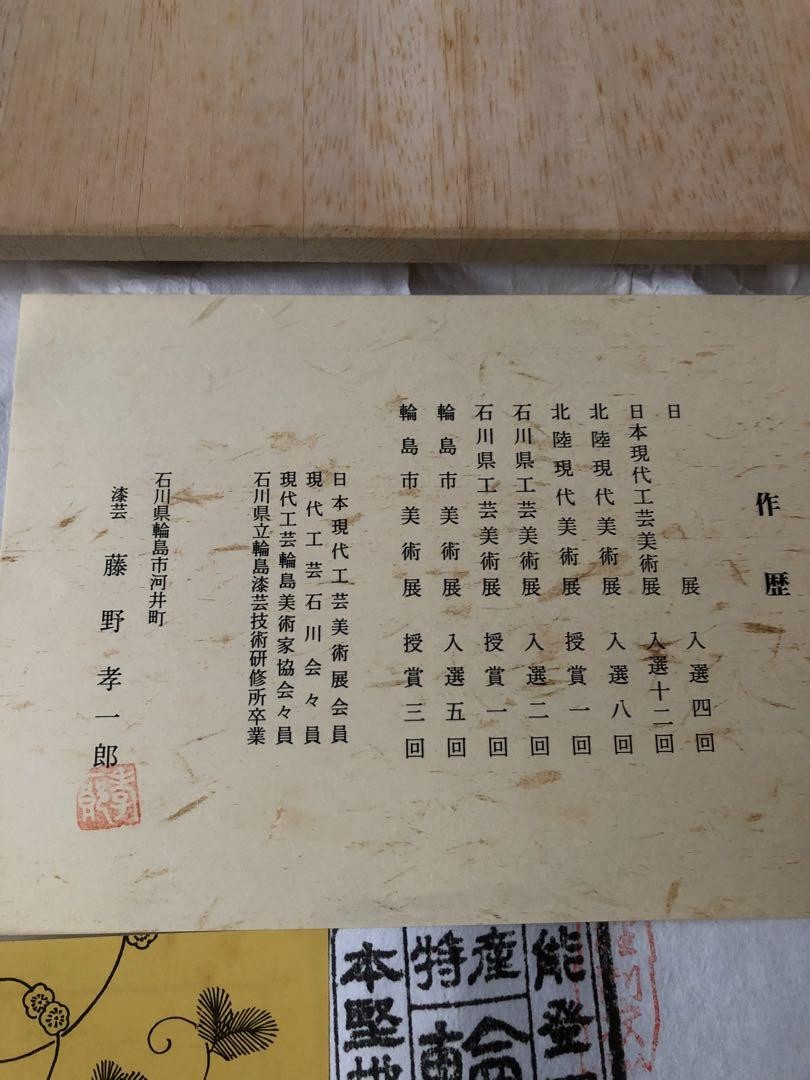 作歴
日展 入選四回
日本現代工芸美術展 入選十二回
北陸現代美術展 入選八回
北陸現代美術展 授賞一回
石川県工芸美術展 入選二回
石川県工芸美術展 授賞一回
輪島市美術展 入選五回
輪島市美術展 授賞三回
日本現代工芸美術展会員
現代工芸石川会々員
現代工芸輪島美術家協会々員
石川県立輪島漆芸技術研修所卒業
石川県輪島市河井町
漆芸 藤野孝一郎
能登
特産
輪
本堅地